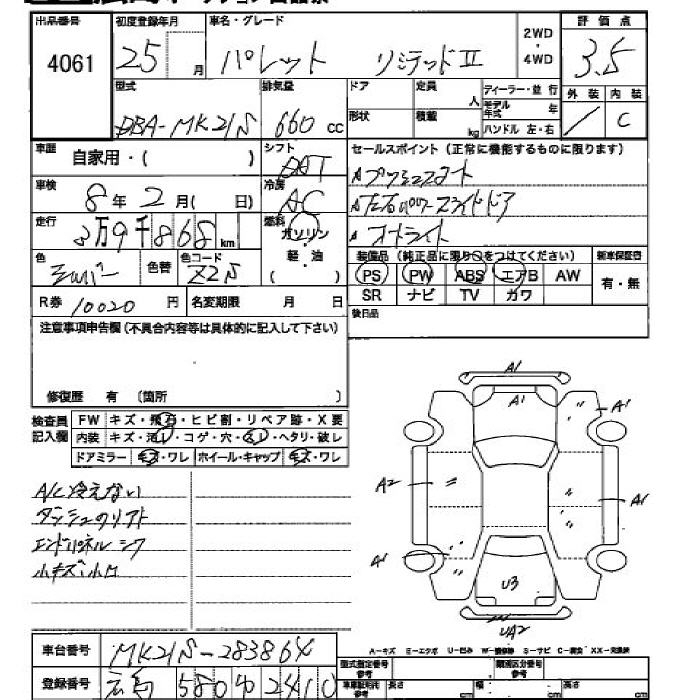 出品番号 初度登録年月 車名・グレード 2WD・4WD 評価点
4061 25 月 パレット リミテッドⅡ 3.5
外装 内装
/ C
型式 排気量 ドア 定員 人 ディーラー・並行
DBA-MK21S 660 cc 形状 積載 kg モデル年式 年
ハンドル 左・右
車歴 自家用・( ) シフト セールスポイント(正常に機能するものに限ります)
DAT
車検 8年2月( 日) 冷房 AC
▲プッシュスタート
▲左右パワースライドドア
▲オートライト
走行 3万9千868km 燃料 ガソリン・軽・油 ( )
色 シルバー 色替 色コード Z2S
装備品(純正品に限り○をつけてください) 新車保証書
PS PW ABS エアB AW 有・無
SR ナビ TV カワ
R券 10020 円 名変期限 月 日
後日品
注意事項申告欄(不具合内容等は具体的に記入して下さい)
修復歴 有 (箇所 )
検査員記入欄
FW キズ・飛石・ヒビ割・リペア跡・X要
内装 キズ・汚レ・コゲ・穴・スレ・ヘタリ・破レ
ドアミラー キズ・ワレ ホイール・キャップ キズ・ワレ
A/C冷えない
ダッシュのリフト
エンドパネルシワ
小キズ小凹
A1
A1
A1
A2
A1
A1
U3
UA2
A-キズ E-エクボ U-凹み W-補修跡 S-サビ C-腐食 XX-交換済
車台番号 MK21S-283864
登録番号 広島 580 2410
型式指定番号参考 類別区分番号参考
長さ cm 幅 cm 高さ cm